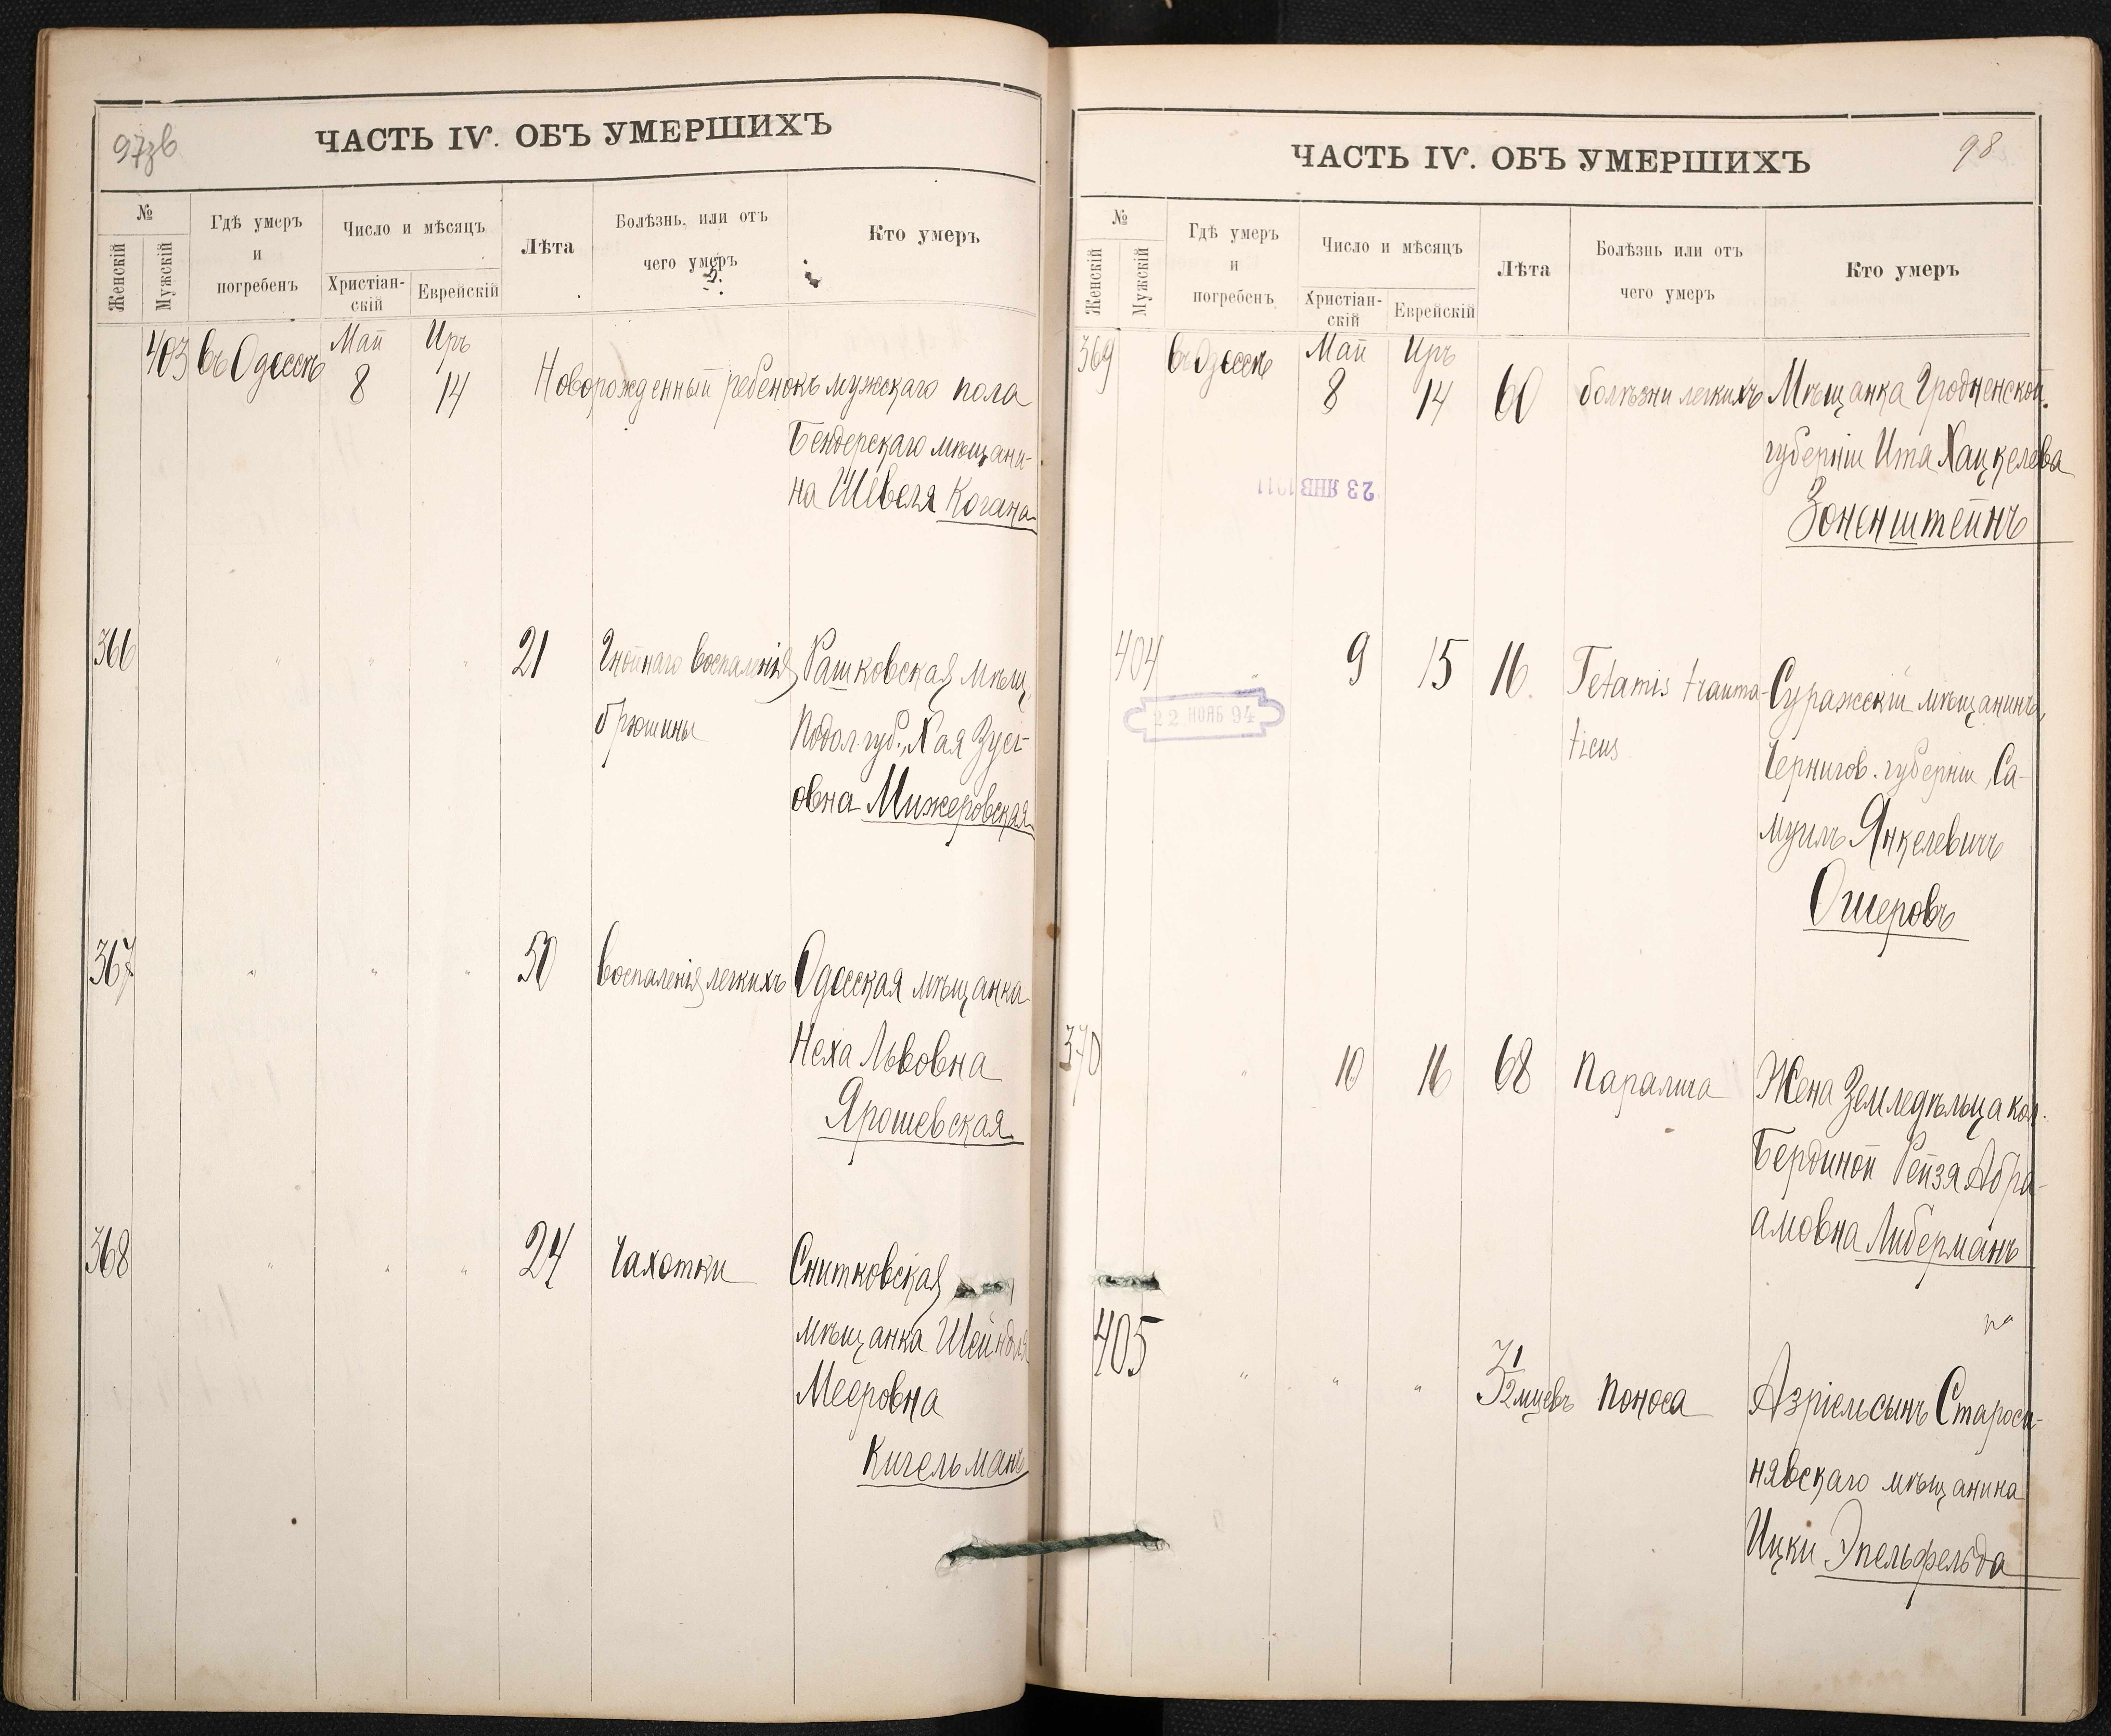 97зв
ЧАСТЬ IV. ОБЪ УМЕРШИХЪ
№
Женскій
Мужскій
Гдѣ умеръ
и
погребенъ
Число и мѣсяцъ
Христіан-
скій
Еврейскій
Лѣта
Болѣзнь, или отъ
чего умеръ
Кто умеръ
403 въ Одессѣ Май Иръ
8 14 Новорожденный ребенокъ мужскаго пола
Бендерскаго мѣщани-
на Шевеля Когана
366 " " " 21 Гнойнаго воспаленія Рашковская мѣщ.
брюшины Подол. губ., Хая Зусі-
овна Мижеровская
367 " " " 50 воспаленія легкихъ Одесская мѣщанка
Неха Львовна
Ярошевская
368 " " " 24 Чахотки Снитковская
мѣщанка Шейндля
Мееровна
Кигельманъ
98
ЧАСТЬ IV. ОБЪ УМЕРШИХЪ
№
Женскій
Мужскій
Гдѣ умеръ
и
погребенъ
Число и мѣсяцъ
Христіан-
скій
Еврейскій
Лѣта
Болѣзнь или отъ
чего умеръ
Кто умеръ
369 въ Одессѣ Май Иръ
8 14 60 болѣзни легкихъ Мѣщанка Гродненской
губерніи Ита Хацкелева
Зоненштейнъ
23 ЯНВ 1911
404 " 9 15 16. Tetamis trauma- Суражскій мѣщанинъ,
22 НОЯБ 94
ticus Чернигов. губерніи, Са-
муилъ Янкелевичъ
Ошеровъ
370 " 10 16 68 Паралича Жена Земледѣльца кол.
Бердиной Рейзя Абра-
амовна Либерманъ
405 " " " 3 1/2 мцевъ Поноса Азріель сынъ Староси-
нявскаго мѣщанина
Ицки Эпельфельда